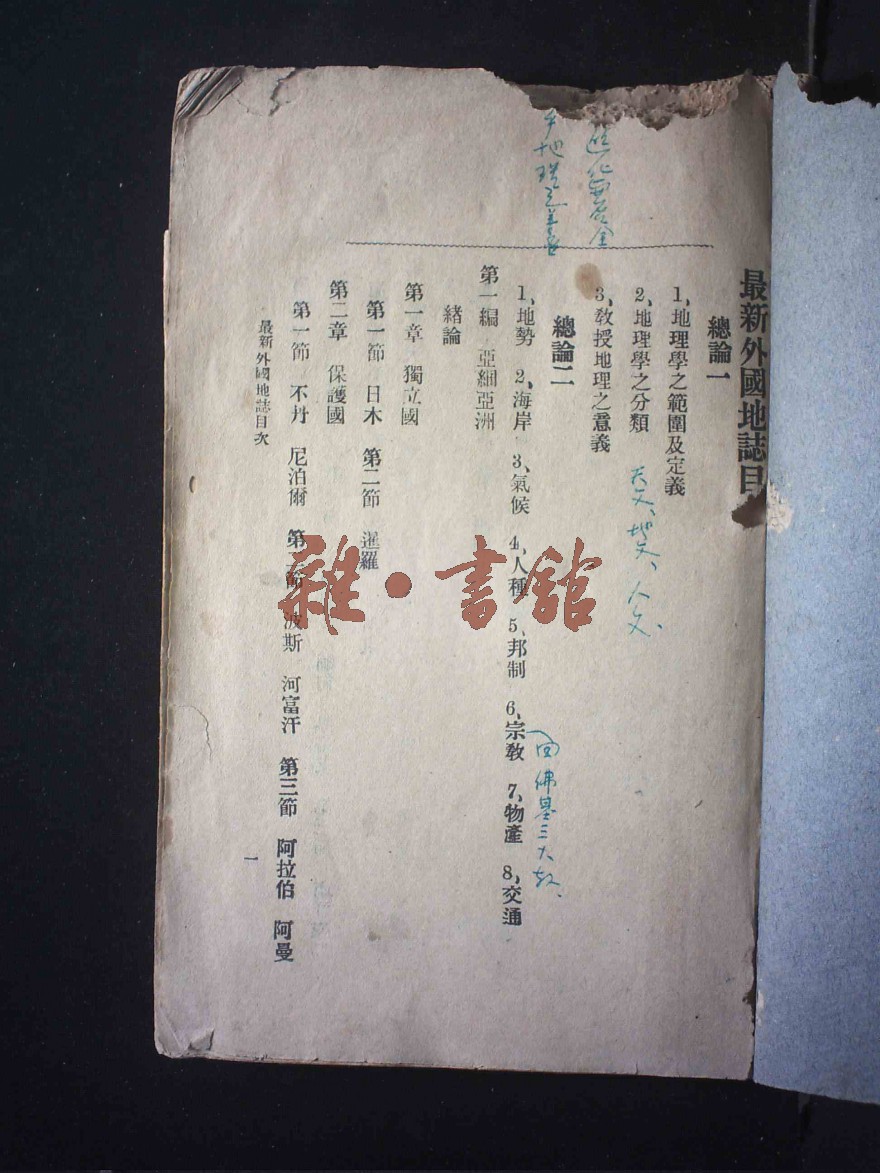 最新外國地誌目
總論一
1、地理學之範圍及定義
2、地理學之分類
天文、地文、人文、
3、敎授地理之意義
總論二
1、地勢 2、海岸 3、氣候 4、人種 5、邦制 6、宗敎 7、物產 8、交通
回佛基三大教、
第一編 亞細亞洲
緒論
第一章 獨立國
第一節 日本 第二節 暹羅
第二章 保護國
第一節 不丹 尼泊爾 第二節 波斯 阿富汗 第三節 阿拉伯 阿曼
最新外國地誌目次
一
雜·書館